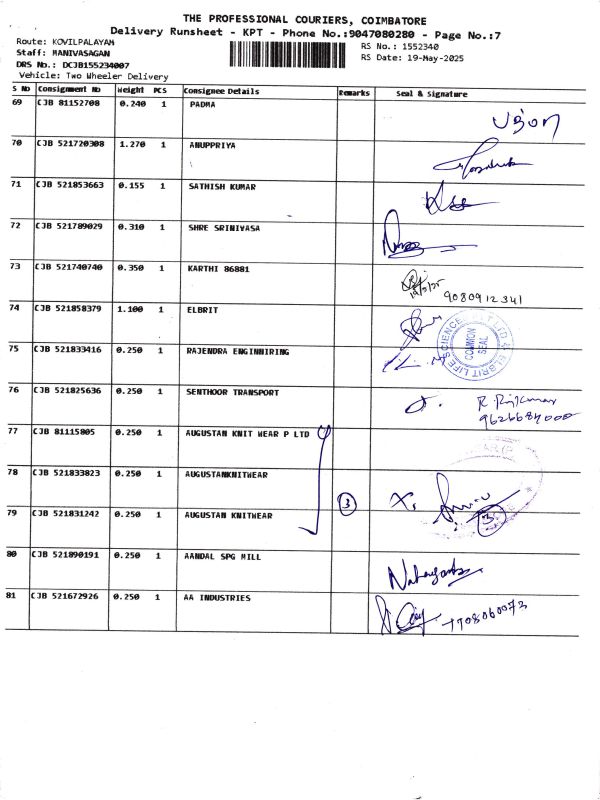 THE PROFESSIONAL COURIERS, COIMBATORE
Delivery Runsheet - KPT - Phone No.:9047080280 - Page No.:7
Route: KOVILPALAYAM
RS No.: 1552340
Staff: MANIVASAGAN
RS Date: 19-May-2025
DRS No.: DCJB155234007
Vehicle: Two Wheeler Delivery
S No Consignment No Weight PCS Consignee Details Remarks Seal & Signature
69 CJB 81152708 0.240 1 PADMA
70 CJB 521720308 1.270 1 ANUPPRIYA
71 CJB 521853663 0.155 1 SATHISH KUMAR
72 CJB 521789029 0.310 1 SHRE SRINIVASA
73 CJB 521740740 0.350 1 KARTHI 86881
9080912341
74 CJB 521858379 1.100 1 ELBRIT
COMMON SEAL
75 CJB 521833416 0.250 1 RAJENDRA ENGINNIRING
76 CJB 521825636 0.250 1 SENTHOOR TRANSPORT
77 CJB 81115805 0.250 1 AUGUSTAN KNIT WEAR P LTD
78 CJB 521833823 0.250 1 AUGUSTANKNITWEAR
79 CJB 521831242 0.250 1 AUGUSTAN KNITWEAR 3
80 CJB 521890191 0.250 1 AANDAL SPG MILL
81 CJB 521672926 0.250 1 AA INDUSTRIES
7708060073